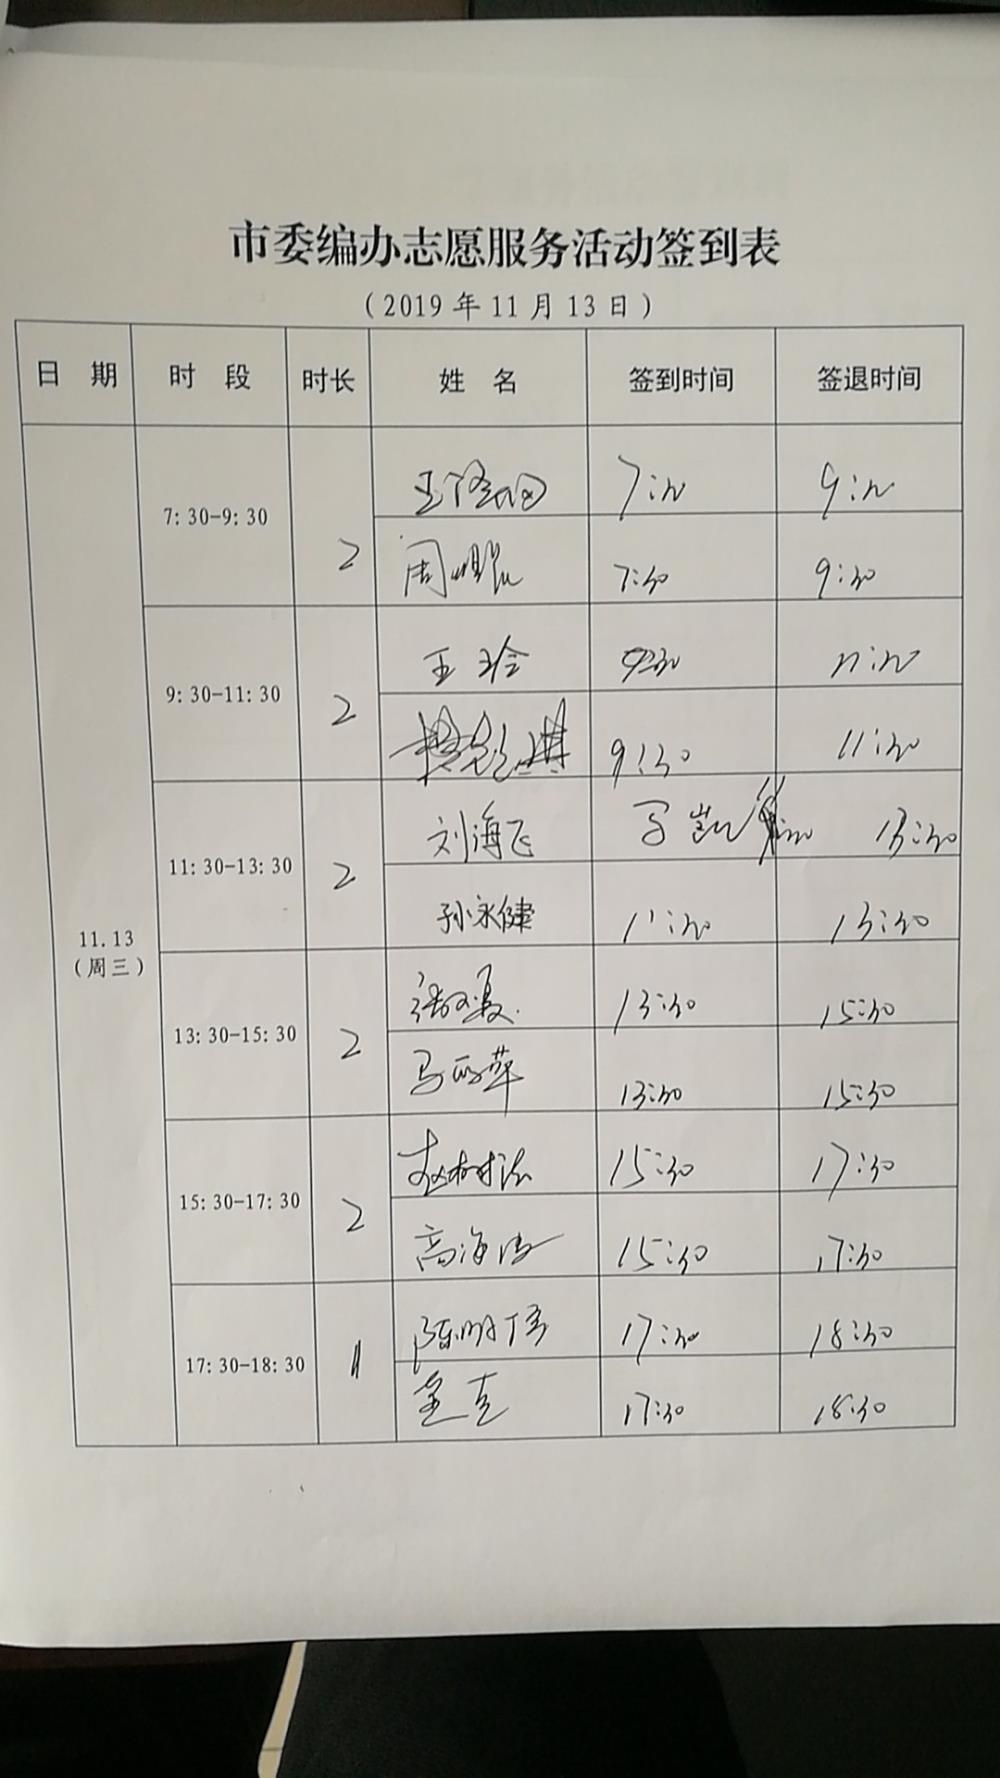 市委编办志愿服务活动签到表
（2019 年 11 月 13 日）
日 期 时 段 时长 姓 名 签到时间 签退时间
11.13
（周三）
7:30-9:30 2 7:30 9:30
周 7:30 9:30
9:30-11:30 2 王玲 9:30 11:30
9:30 11:30
11:30-13:30 2 刘海飞 马凯 13:30
孙永健 11:30 13:30
13:30-15:30 2 13:30 15:30
马丽苹 13:30 15:30
15:30-17:30 2 15:30 17:30
高海 15:30 17:30
17:30-18:30 1 陈明 17:30 18:30
17:30 18:30